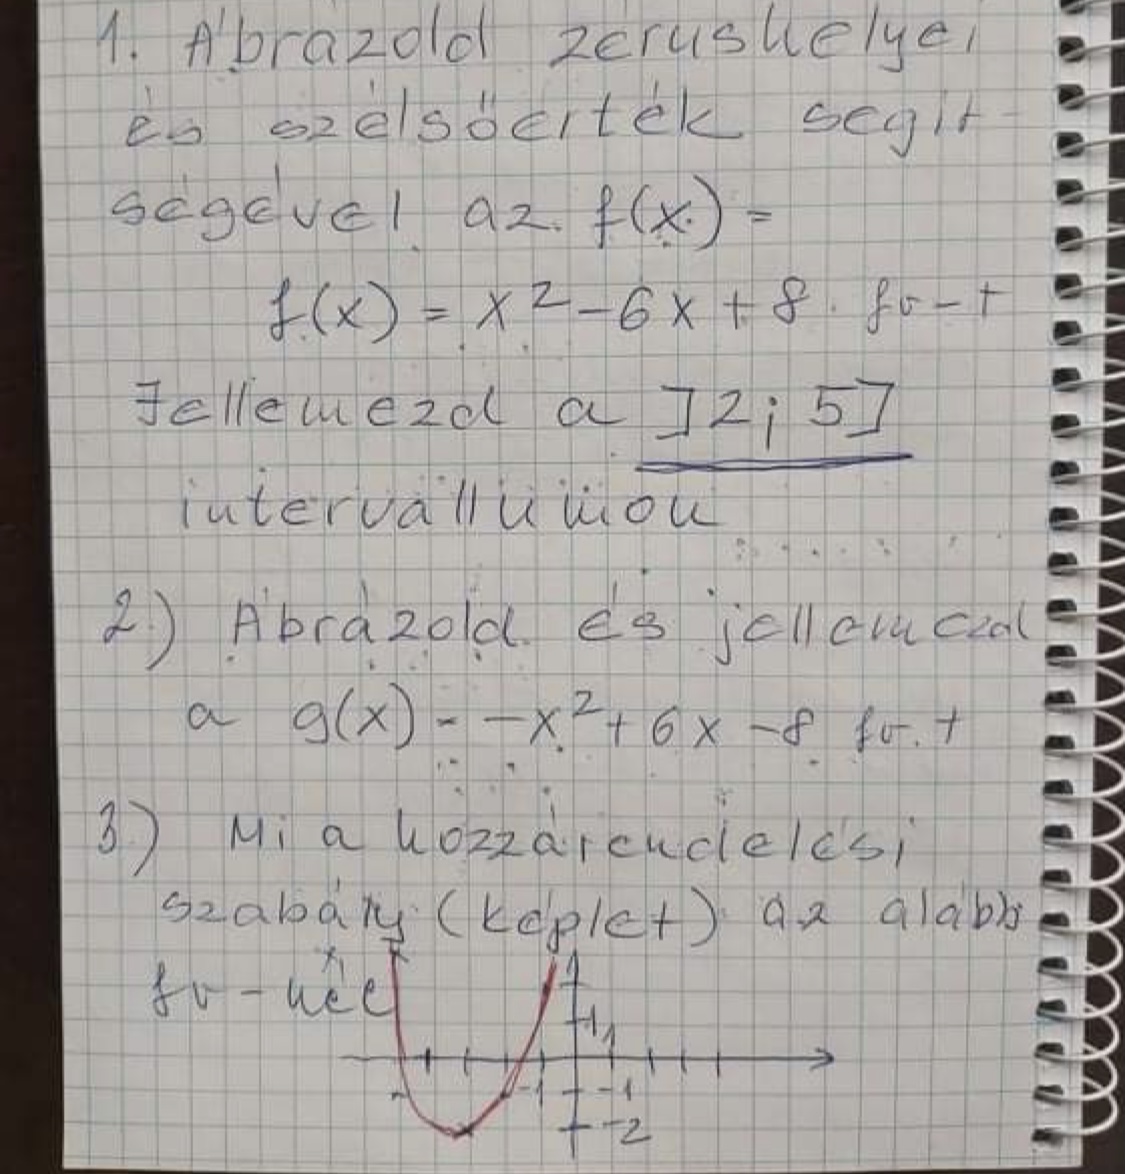 1. Ábrázold zérushelyei
és szélsőérték segít-
ségével az f(x) =
f(x) = x² - 6x + 8 fv-t
Jellemezd a ]2; 5]
intervallumon
2.) Ábrázold és jellemezd
a g(x) = -x² + 6x - 8 fv. t
3.) Mi a hozzárendelési
szabály (képlet) az alábbi
fv-nél
1
1
-1 -1
-2